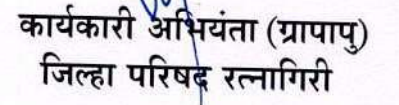 कार्यकारी अभियंता (ग्रापापु)
जिल्हा परिषद रत्नागिरी